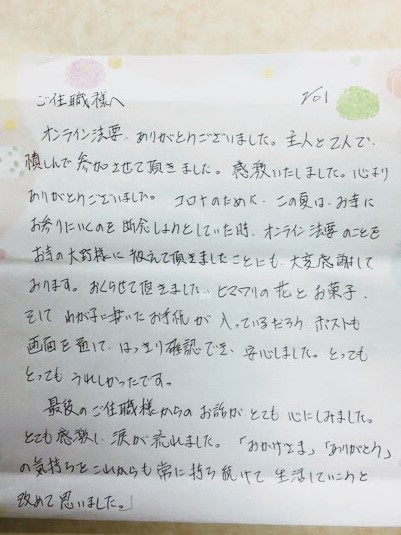 ご住職様へ 7/01
オンライン法要、ありがとうございました。主人と2人で、
慎しんで参加させて頂きました。感激いたしました。心より
ありがとうございました。コロナのために、この夏は、お寺に
お参りにいくのを断念しようとしていた時、オンライン法要のことを
お寺の大野様に教えて頂きましたことにも、大変感謝して
おります。おくらせて頂きました、ヒマワリの花とお菓子、
そして わが子に書いたお手紙が入っているだろう ポストも
画面を通して、はっきり確認でき、安心しました。とっても
とっても うれしかったです。
最後のご住職様からのお話が、とても心にしみました。
とても感激し、涙が流れました。「おかげさま」「ありがとう」
の気持ちをこれからも常に持ち続けて 生活していこうと
改めて思いました。」